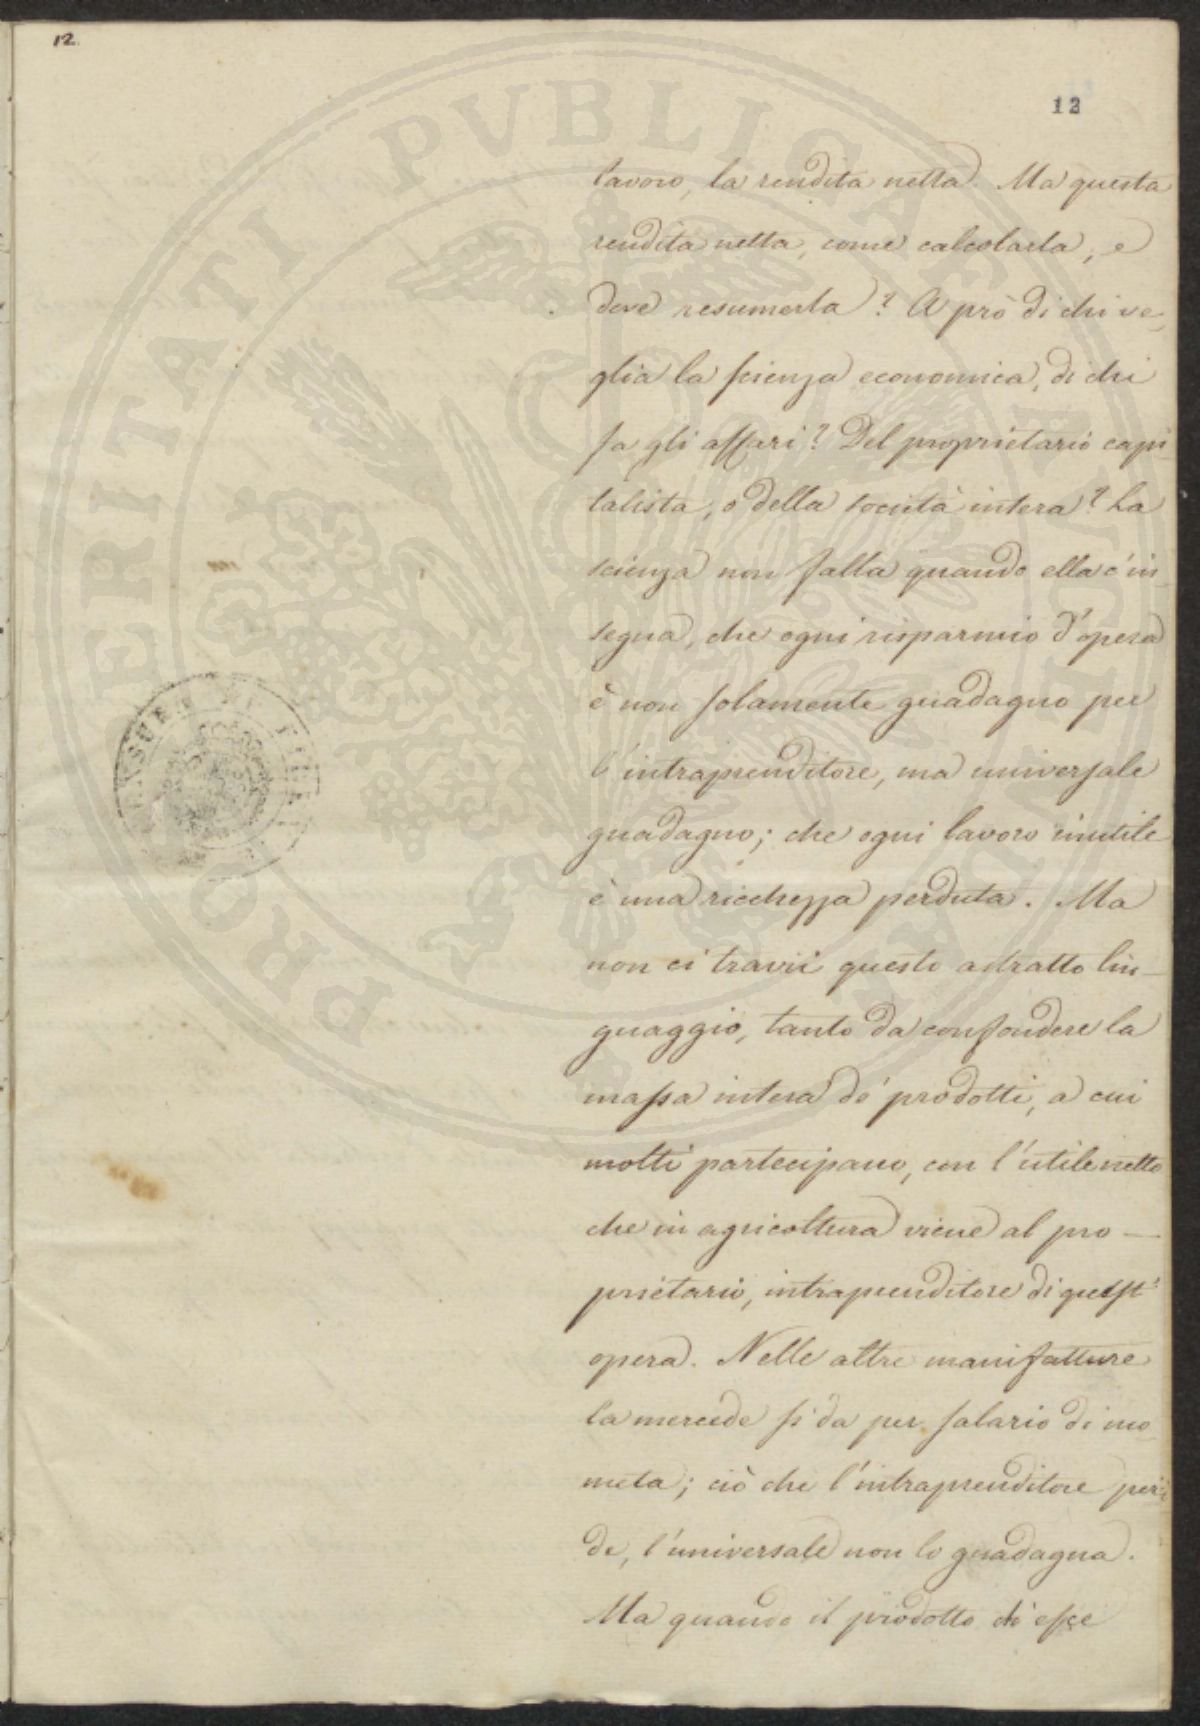 12.
12
lavoro, la rendita netta. Ma questa
rendita netta, come calcolarla, e
dove resumerla? A prò di chi ve-
glia la scienza economica, di chi
fa gli affari? Del proprietario capi-
talista, o della società intera? La
scienza non falla quando ella c'in-
segna, che ogni risparmio d'opera
è non solamente guadagno per
l'intraprenditore, ma universale
guadagno; che ogni lavoro inutile
è una ricchezza perduta. Ma
non ci travii questo astratto lin-
guaggio, tanto da confondere la
massa intera de' prodotti, a cui
molti partecipano, con l'utile netto
che in agricoltura viene al pro-
prietario, intraprenditore di quest'
opera. Nelle altre manifatture
la mercede si da per salario di mo-
neta; ciò che l'intraprenditore per-
de, l'universale non lo guadagna.
Ma quando il prodotto ch'esce
PROSPERITATI PVBLICAE